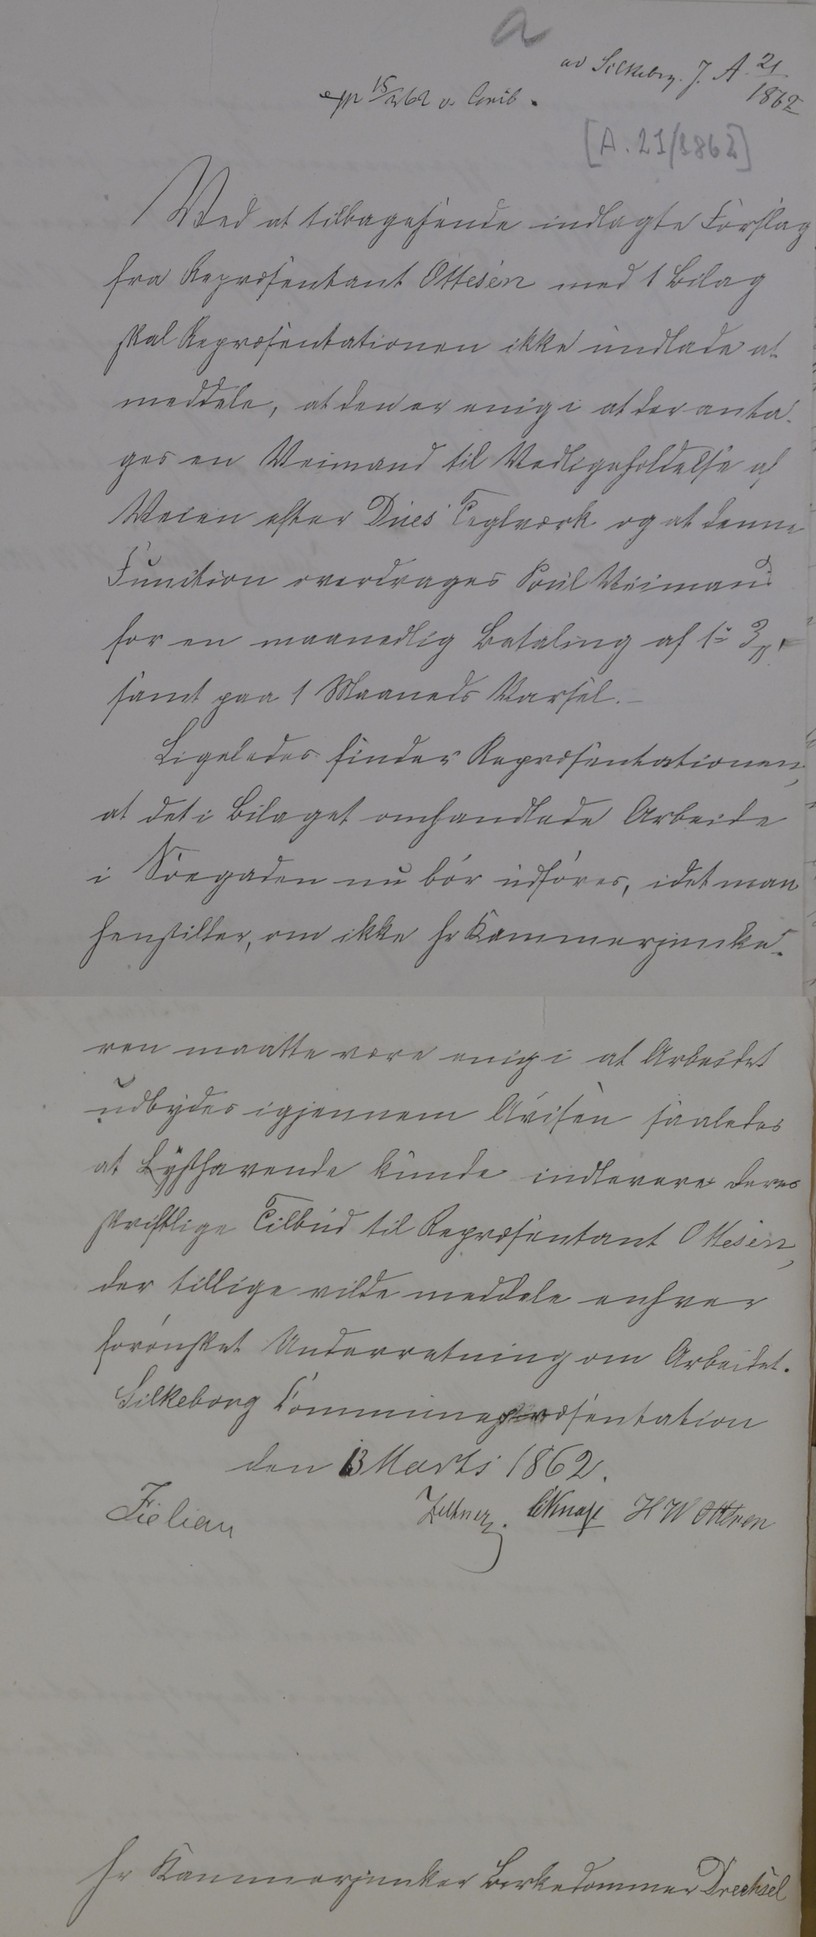 a
ad Silkeborg. J. A. 21/1862
exp 15/3 62 v. Coub.
[A. 21/1862]
Ved at tilbagesende indlagte Forslag
fra Repræsentant Ottesen med 1 Bilag
skal Repræsentationen ikke undlade at
meddele, at den er enig i at der anta-
ges en Veimand til Vedligeholdelse af
Veien efter Dües Teglværk og at denne
Function overdrages Poul Veimand
for en maanedlig Betaling af 1 3
samt paa 1 Maaneds Varsel.-
Ligeledes finder Repræsentationen,
at det i Bilaget omhandlede Arbeide
i Søegaden nu bór udføres, idet man
henstiller, om ikke Hr Kammerjunke-
ren maatte være enig i at Arbeidet
udbydes igjennem Avisen saaledes
at Lysthavende kunde indlevere deres
skriftlige Tilbud til Repræsentant Ottesen,
der tillige vilde meddele enhver
forønsket Underretning om Arbeidet.
Silkeborg Communerepræsentation
den 13 Marts 1862.
Fielian Zeltner. CKnap H W Ottesen
Hr Kammerjunker Birkedommer Drechsel